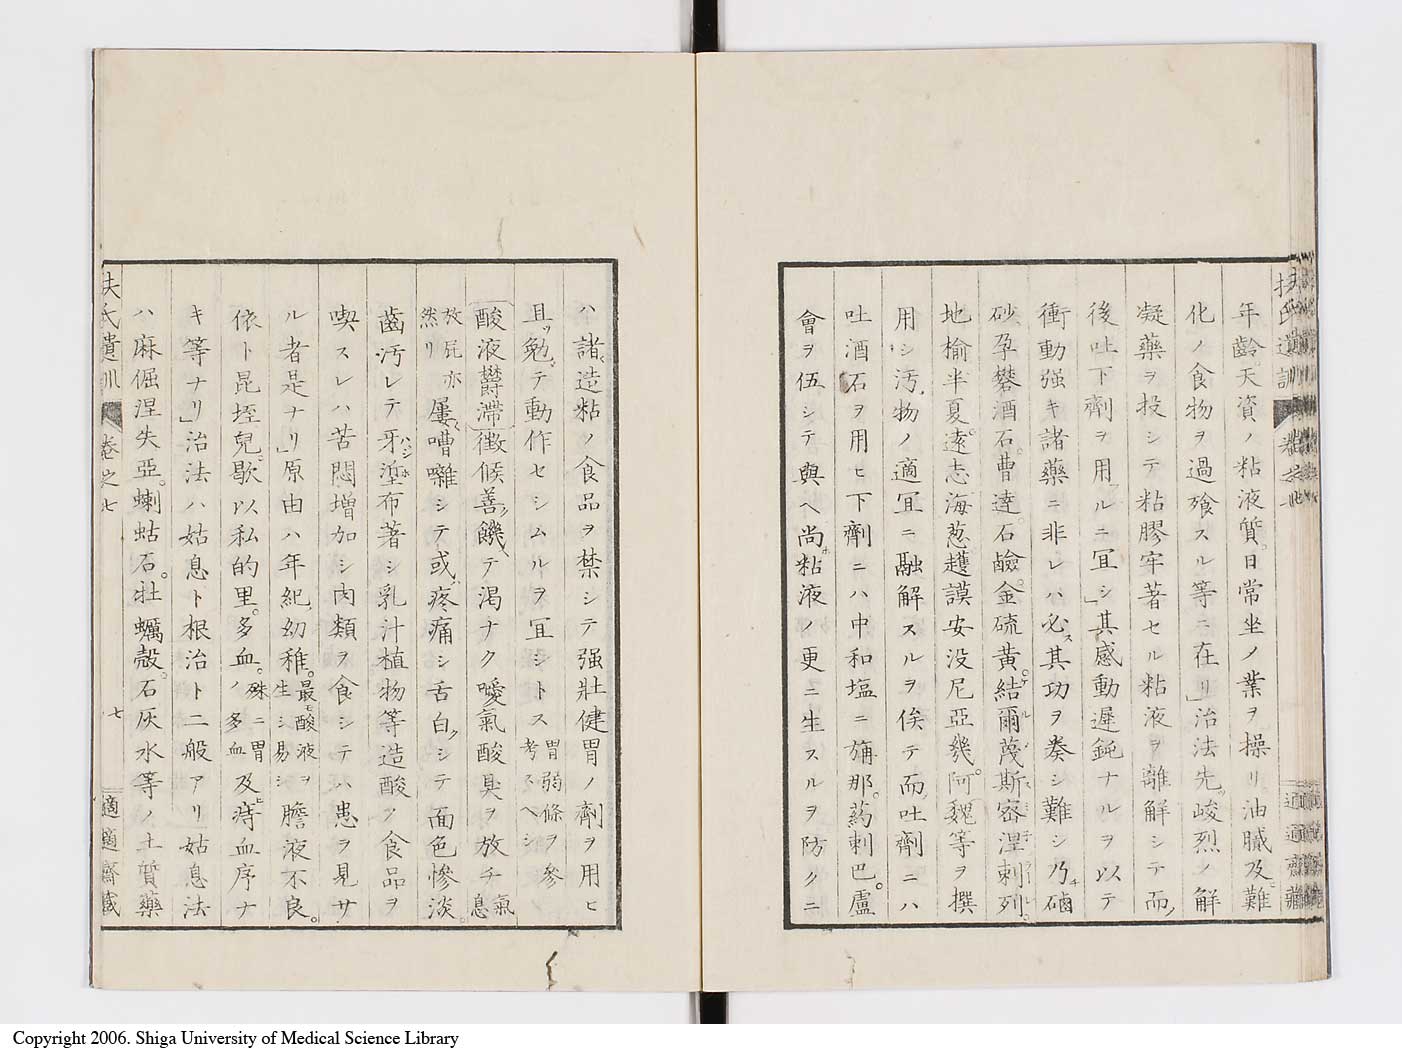 扶氏遺訓 卷之七 適適齋藏
年齡天資ノ粘液質。日常坐ノ業ヲ操リ。油膩及ヒ難
化ノ食物ヲ過飱スル等ニ在リ」治法先ツ峻烈ノ解
凝藥ヲ投シテ粘膠牢著セル粘液ヲ離解シテ而ノ
後吐下劑ヲ用フルニ冝シ」其感動遲鈍ナルヲ以テ
衝動强キ諸藥ニ非レハ必ス其功ヲ奏シ難シ乃チ磠
砂。孕礬酒石。曹達。石鹼。金硫黃。結爾蔑斯密涅剌列。
地榆。半夏。遠志。海葱。越謨安没尼亞幾。阿魏等ヲ撰
用シ汚物ノ適冝ニ融解スルヲ俟テ而吐劑ニハ
吐酒石ヲ用ヒ下劑ニハ中和塩ニ旃那。葯剌巴。盧
會ヲ伍シテ與ヘ尚ホ粘液ノ更ニ生スルヲ防クニ
ハ諸造粘ノ食品ヲ禁シテ强壯健胃ノ劑ヲ用ヒ
且ツ勉テ動作セシムルヲ冝シトス 胃弱條ヲ參考スヘシ
酸液鬱滯 徵候善ク饑ヘテ渴ナク噯氣酸臭ヲ放チ 氣息
放屁亦然リ 屢嘈囃シテ或ハ疼痛シ舌白クシテ面色慘淡。
齒汚レテ牙 ハジホ 埿布著シ乳汁植物等造酸ノ食品ヲ
喫スレハ苦悶增加シ肉類ヲ食シテハ患ヲ見サ
ル者是ナリ」原由ハ年紀幼稚。 最モ酸液ヲ生シ易シ 膽液不良。
依ト昆垤兒。歇以私的里。多血。 殊ニ胃ノ多血 及ヒ痔血序ナ
キ等ナリ」治法ハ姑息ト根治ト二般アリ姑息法
ハ麻倔涅失亞。蝲蛄石。牡蠣殼。石灰水等ノ土質藥
扶氏遺訓 卷之七 七 適適齋藏
Copyright 2006. Shiga University of Medical Science Library